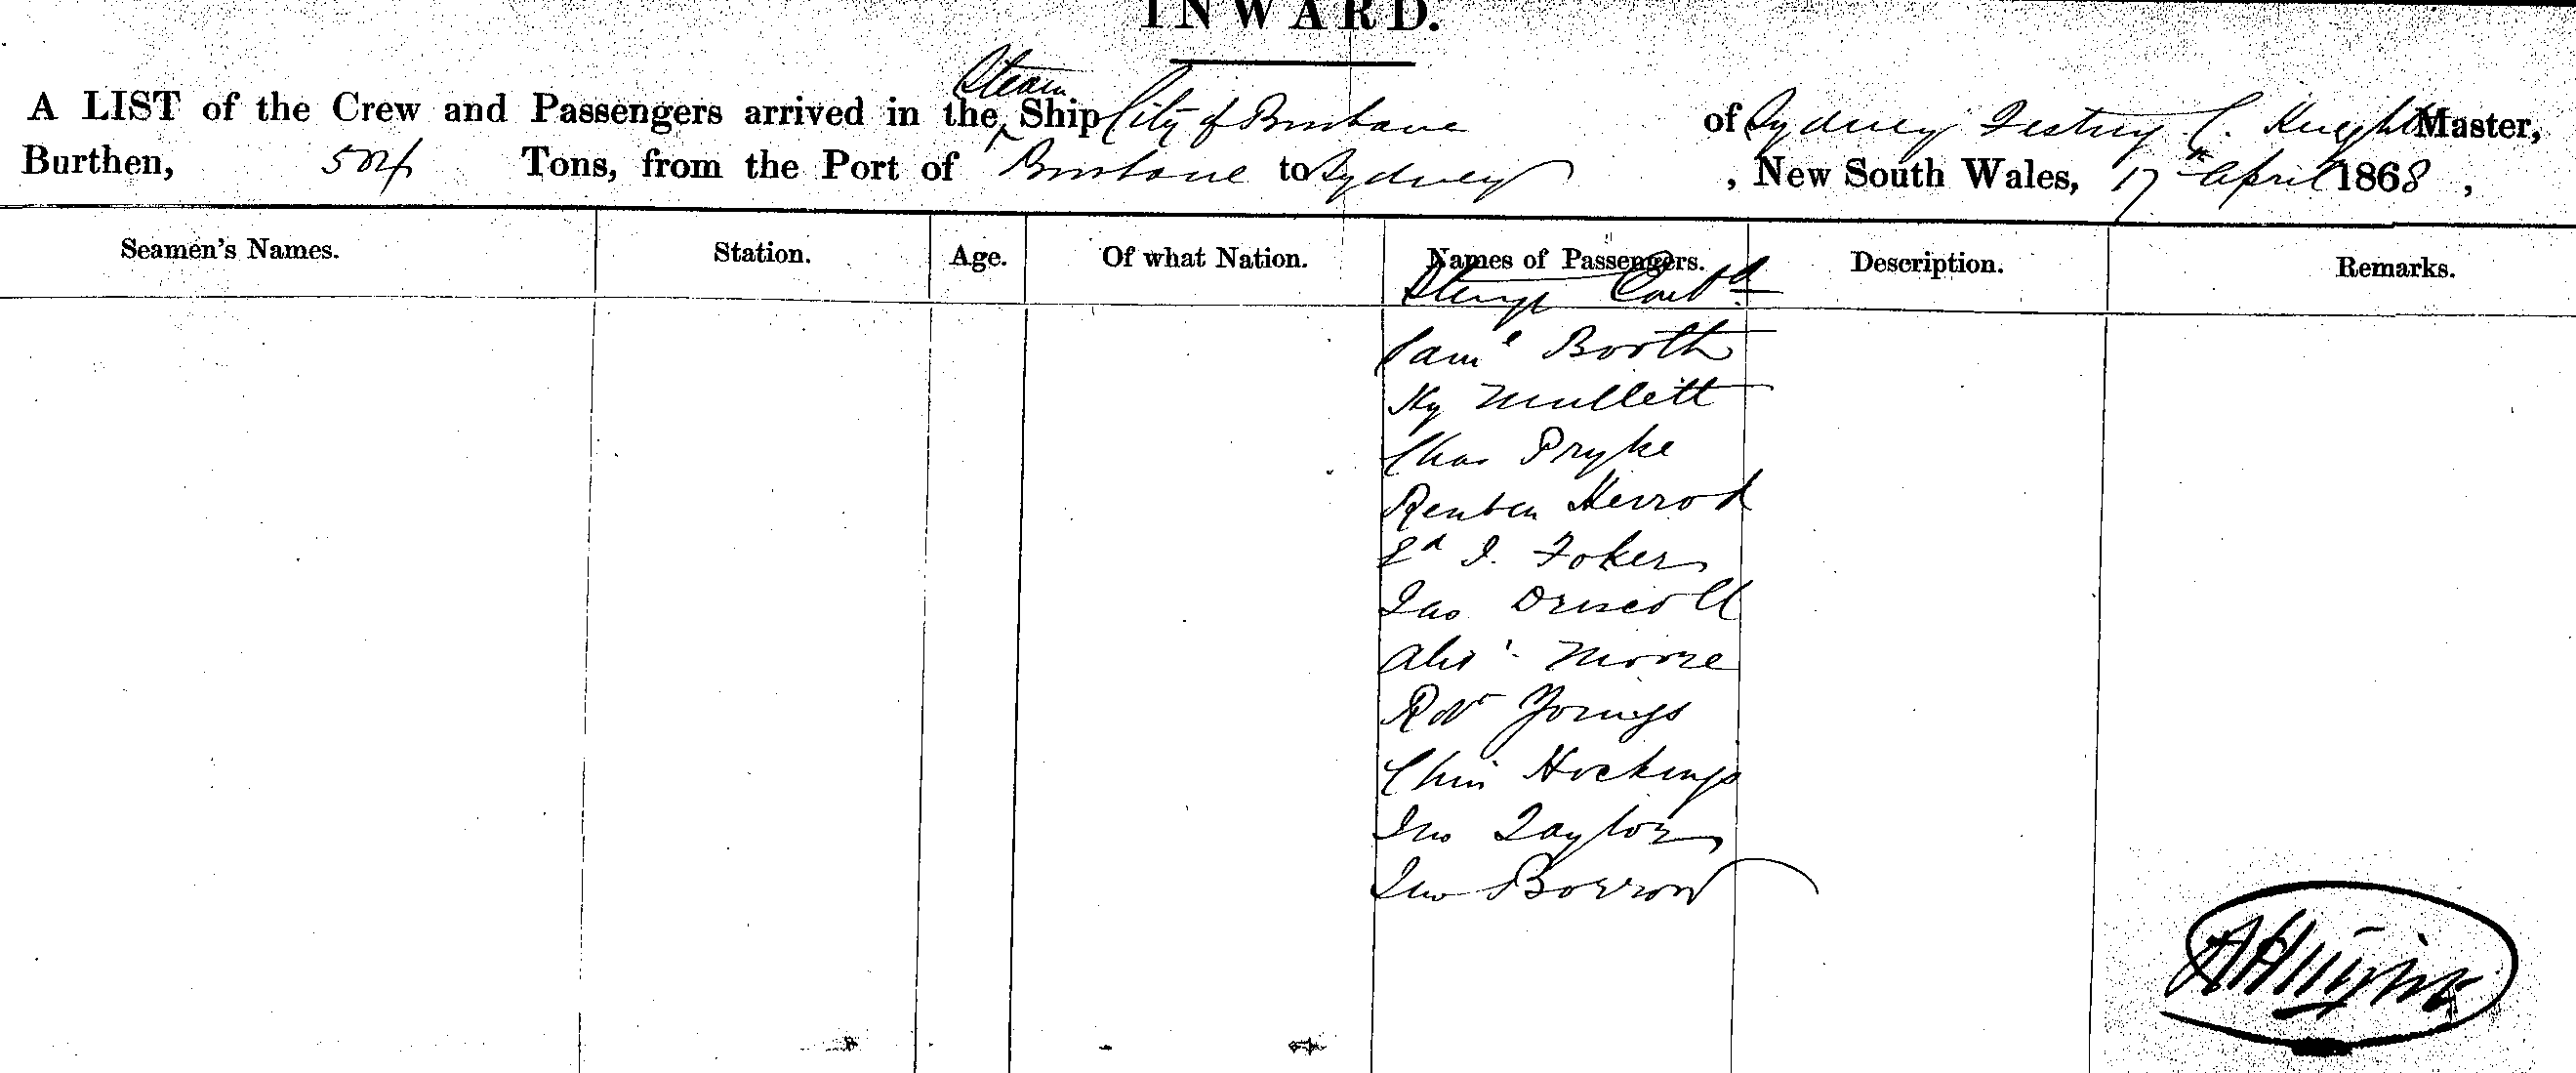 INWARD.
Steam
A LIST of the Crew and Passengers arrived in the Ship City of Brisbane of Sydney C. Knight Master,
Burthen, 504 Tons, from the Port of Brisbane to Sydney, New South Wales, 17th April 1868,
Seamen's Names. Station. Age. Of what Nation. Names of Passengers. Description. Remarks.
Contd
Saml Booth
Hy Mullett
Chas Pryke
Reuben Herrod
Ed I. Foker
Jas Driscoll
Alexr Moore
Robt Youngs
Chris Hockings
Jno Taylor
Jno Borrow